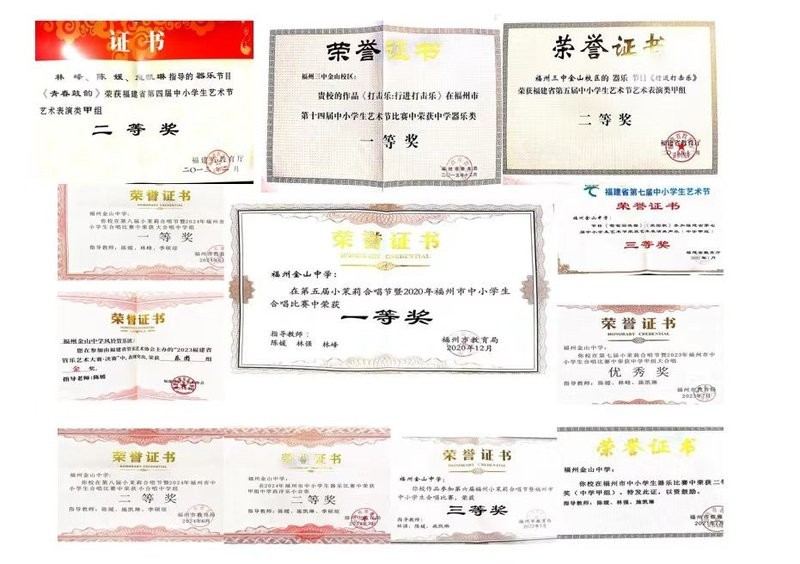 证书
林峰、陈媛、施凯琳指导的器乐节目
《青春鼓韵》荣获福建省第四届中小学生艺术节
艺术表演类甲组
二等奖
福建省教育厅
荣誉证书
福州三中金山校区:
贵校的作品《打击乐:行进打击乐》在福州市
第十四届中小学生艺术节比赛中荣获中学器乐类
一等奖
荣誉证书
福州三中金山校区的 器乐 节目《行进打击乐》
荣获福建省第五届中小学生艺术节艺术表演类甲组
二等奖
福建省教育厅
荣誉证书
HONORARY CREDENTIAL
福州金山中学:
你校在第八届小茉莉合唱节暨2024年福州市
中小学生合唱比赛中荣获大合唱中学组
一等奖
指导教师:陈媛、林峰、李硕琼
荣誉证书
HONORARY CREDENTIAL
福州金山中学:
在第五届小茉莉合唱节暨2020年福州市中小学生
合唱比赛中荣获
一等奖
指导教师:
陈媛 林强 林峰
福州市教育局
2020年12月
福建省第七届中小学生艺术节
荣誉证书
福州金山中学:
三等奖
荣誉证书
福州金山中学风铃管乐团:
金奖。
指导老师:陈媛
荣誉证书
HONORARY CREDENTIAL
福州金山中学:
你校在第七届小茉莉合唱节暨2023年福州市中
小学生合唱比赛中荣获中学甲组大合唱
优秀奖
指导教师:陈媛、林峰、施凯琳
福州市教育局
2023年7月
荣誉证书
HONORARY CREDENTIAL
福州金山中学:
你校在第八届小茉莉合唱节暨2024年福州市中
小学生合唱比赛中荣获小合唱中学组
二等奖
指导教师:陈媛、施凯琳、李硕琼
福州市教育局
2024年6月
荣誉证书
HONORARY CREDENTIAL
福州金山中学:
在2024年福州市中小学生器乐比赛中荣获
甲组中学西洋乐小合奏
二等奖
指导教师:陈媛、施凯琳、李硕琼
荣誉证书
福州金山中学:
你校作品参加第六届福州小茉莉合唱节暨福州市
中小学生合唱比赛,荣获
三等奖
指导教师:
林强、陈媛、施凯琳
福州市教育局
荣誉证书
福州金山中学:
你校在福州市中小学生器乐比赛中荣获二等
奖(中学甲组),特发此证,以资鼓励。
指导教师:陈媛、林强、施凯琳